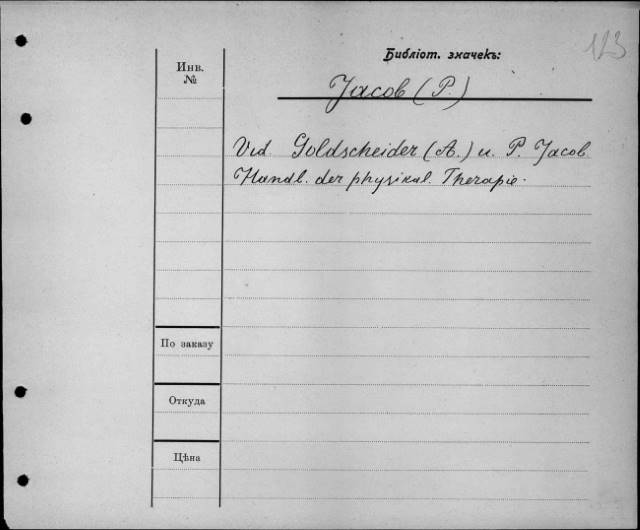 113
Библіот. значекъ:
Инв.
№
Jacob (P.)
Vid. Goldscheider (A.) u. P. Jacob
Handb. der physikal. Therapie.
По заказу
Откуда
Цѣна